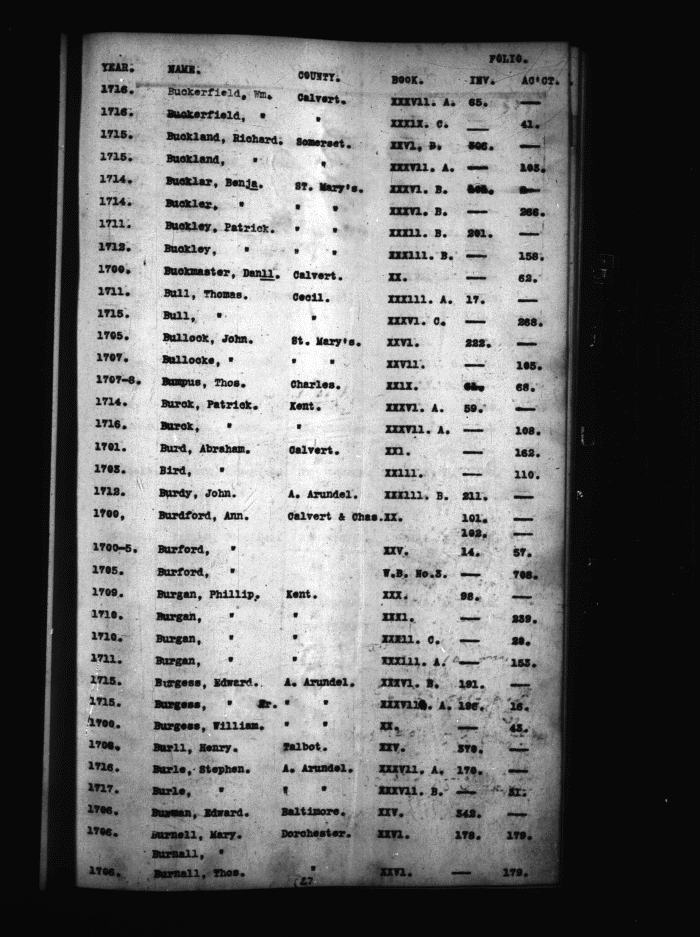 FOLIO.
YEAR. NAME. COUNTY. BOOK. INV. AC'CT.
1716. Buckerfield, Wm. Calvert. XXXVll. A. 65. —
1716. Buckerfield, " " XXXlX. C. — 41.
1715. Buckland, Richard. Somerset. XXVl. B. 306. —
1715. Buckland, " " XXXVll. A. — 103.
1714. Bucklar, Benja. ST. Mary's. XXXVl. B. —
1714. Buckler, " " " XXXVl. B. — 266.
1711. Buckley, Patrick. " " XXXll. B. 201. —
1712. Buckley, " " " XXXlll. B. — 158.
1700. Buckmaster, Danll. Calvert. XX. — 62.
1711. Bull, Thomas. Cecil. XXXlll. A. 17. —
1715. Bull, " " XXXVl. C. — 268.
1705. Bullock, John. St. Mary's. XXVl. 222. —
1707. Bullocke, " " " XXVll. — 105.
1707-8. Bumpus, Thos. Charles. XXlX. 68.
1714. Burck, Patrick. Kent. XXXVl. A. 59. —
1716. Burck, " " XXXVll. A. — 108.
1701. Burd, Abraham. Calvert. XXl. — 162.
1703. Bird, " XXlll. — 110.
1712. Burdy, John. A. Arundel. XXXlll. B. 211. —
1700, Burdford, Ann. Calvert & Chas. XX. 101. —
102. —
1700-5. Burford, " XXV. 14. 57.
1705. Burford, " W.B. No.3. — 708.
1709. Burgan, Phillip. Kent. XXX. 98. —
1710. Burgan, " " XXXl. — 239.
1710. Burgan, " " XXXll. C. — 20.
1711. Burgan, " " XXXlll. A. — 153.
1715. Burgess, Edward. A. Arundel. XXXVl. B. 191. —
1715. Burgess, " Sr. " " A. 196. 16.
1700. Burgess, William. " " XX. — 43.
1708. Burll, Henry. Talbot. XXV. 370. —
1716. Burle, Stephen. A. Arundel. XXXVll. A. 170. —
1717. Burle, " " " XXXVll. B. — 31.
1706. Burman, Edward. Baltimore. XXV. 342. —
1706. Burnell, Mary. Dorchester. XXVl. 179. 179.
Burnall, "
1706. Burnall, Thos. " XXVl. — 179.